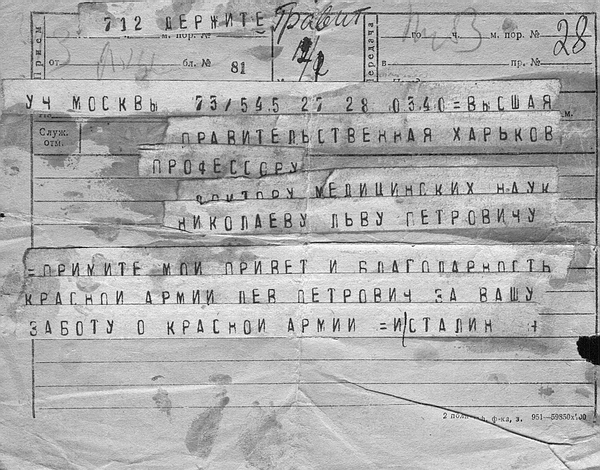 712 ДЕРЖИТЕ
Правит
Прием
м. пор. №
Передача
го ч. м. пор. №
28
от
бл. № 81
в
пр. №
УЧ МОСКВЫ 73/545 27 28 0340=ВЫСШАЯ
Служ.
отм.
ПРАВИТЕЛЬСТВЕННАЯ ХАРЬКОВ
ПРОФЕССОРУ
ДОКТОРУ МЕДИЦИНСКИХ НАУК
НИКОЛАЕВУ ЛЬВУ ПЕТРОВИЧУ
=ПРИМИТЕ МОИ ПРИВЕТ И БЛАГОДАРНОСТЬ
КРАСНОЙ АРМИИ ЛЕВ ПЕТРОВИЧ ЗА ВАШУ
ЗАБОТУ О КРАСНОЙ АРМИИ =И/СТАЛИН +
ф-ка, з. 951—59850х100